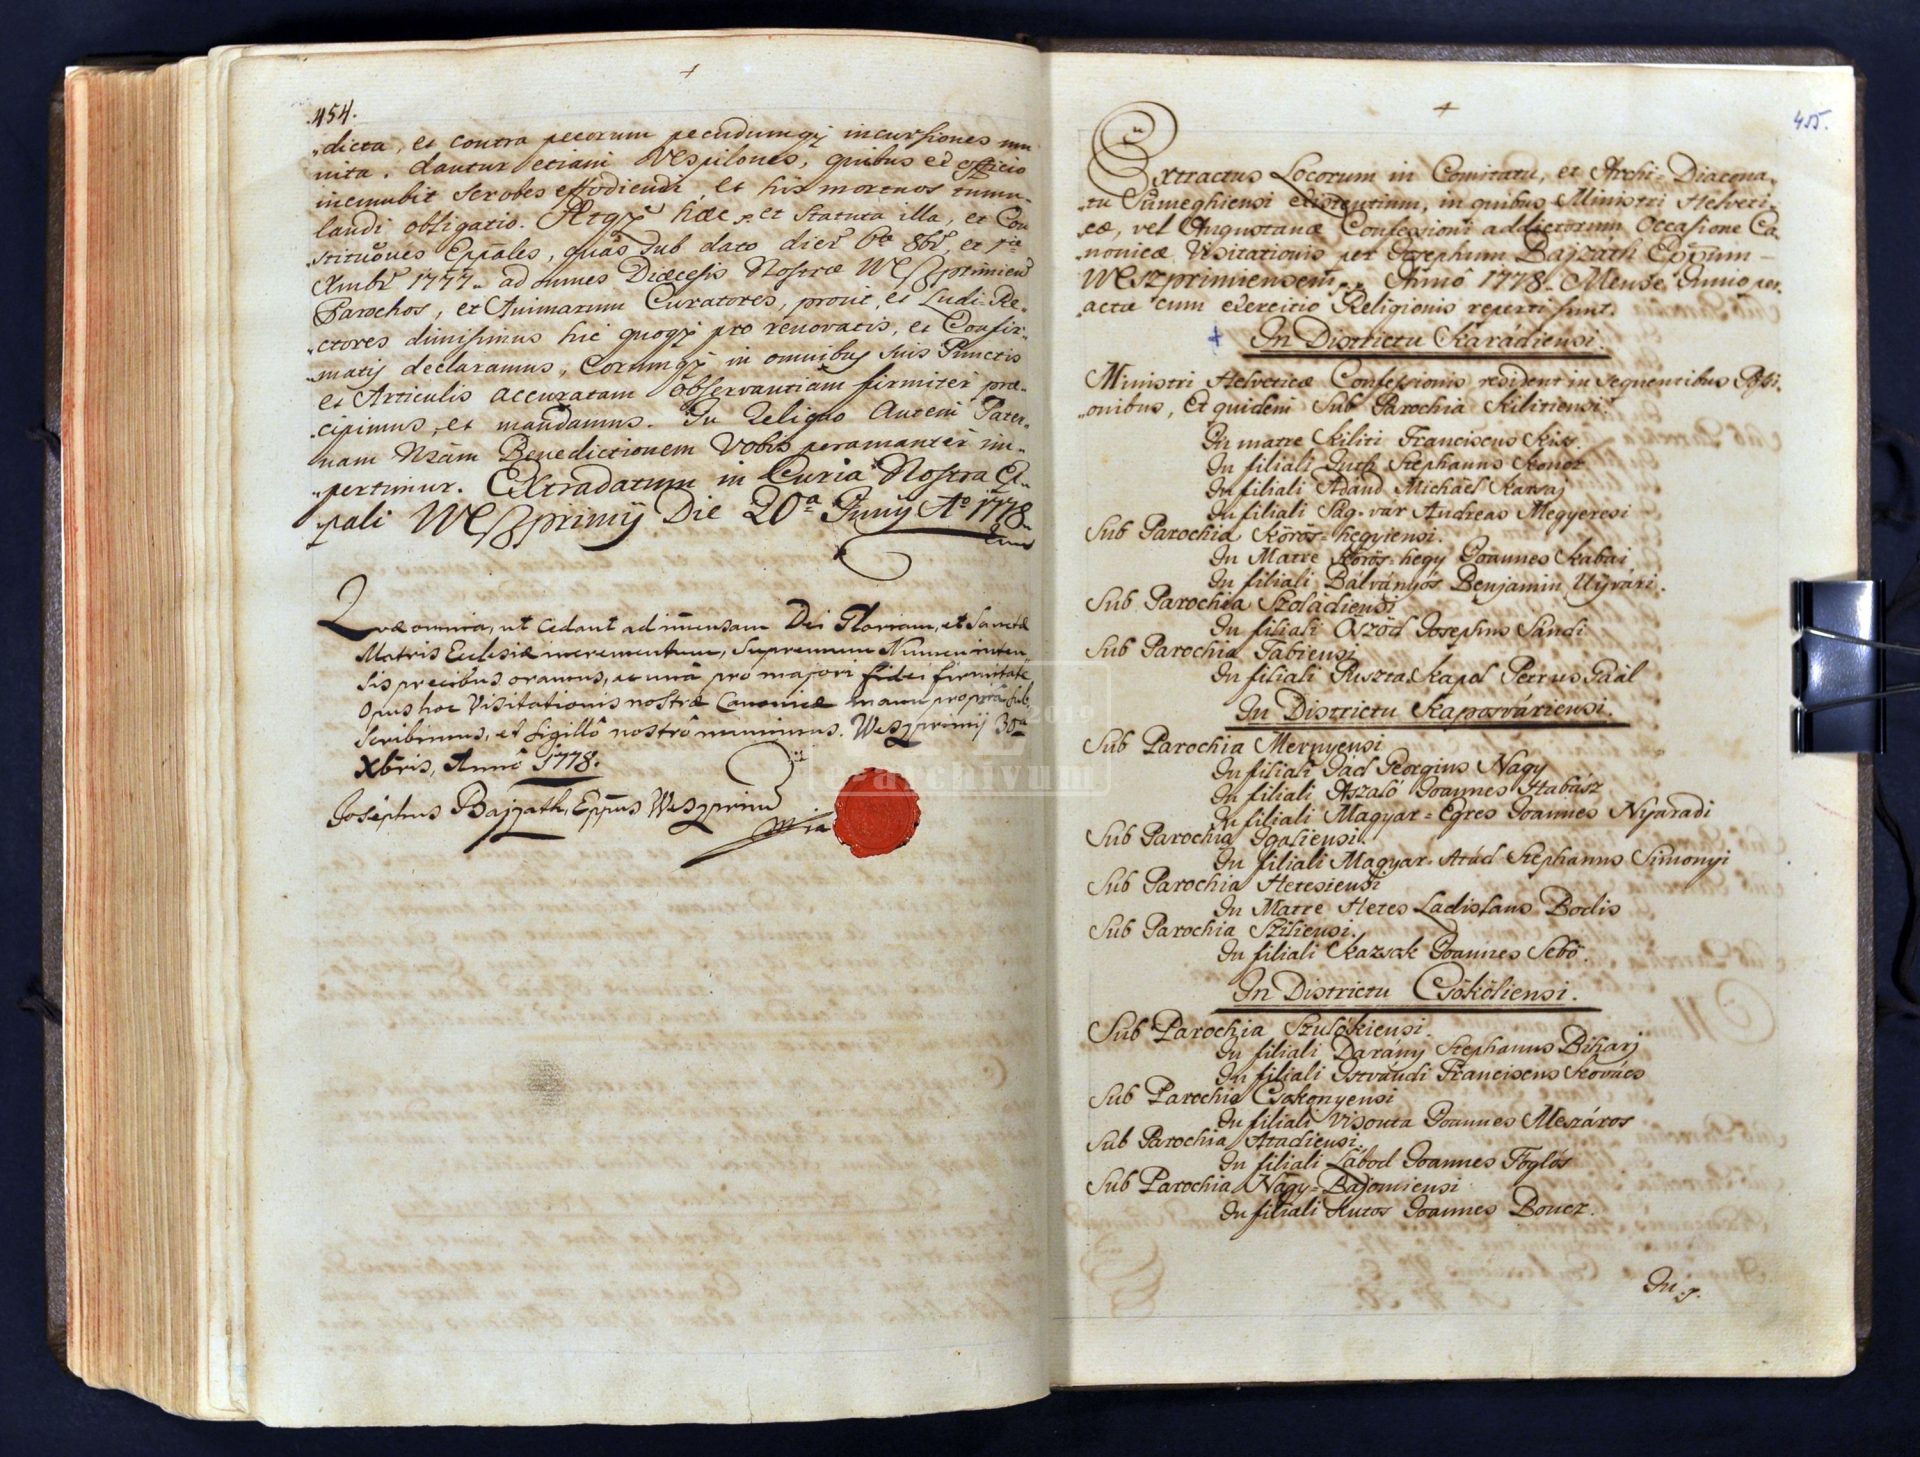 454.
„dicta, et contra pecorum pecudumq́ incursiones mu„
nita. dantur etiam Vespilones, quibus ex officio
incumbit Scrobes effodiendi, et his mortuos tumu„
landi obligatio. Atq́ haec, et Statuta illa, et Con„
„stitućoes Epp̄ales, quas sub dato
Xmbr 1777. ad omes Diaecesis Nostrae Weszprimien̄
Parochos, et Animarum Curatores, prout, et Ludi=Re„
„ctores dimisimus hic quoq́ pro renovatis, et Confir„
„matis declaramus, eorumq́ in omnibus suis Punctis
et Articulis accuratam observantiam firmiter prae„
„cipimus, et mandamus. In Reliquo Autem Pater„
nam Nr̄am Benedictionem Vobis peramanter im„
„pertimur. Extradatum in Curia Nostra E„
pali Weszprimij Die 20a Junij Ao 1778.
Quae omnia, ut cedant ad im̄ensam Dei Gloriam, et Sanctae
Matris Eclesiae incrementum, Supremum Numen inten„
sis precibus oramus, ac unā pro majori fidei firmitate
Opus hoc Visitationis nostrae Canonicae manu propriā sub„
scribimus, et sigillō nostrō munimus. Weszprimij 30a
Xbris, Annō 1778.
Josephus Bajzath, Epp̄us Weszprim̄
mpia
archivum
2019
455.
Extractus Locorum in Comitatu, et Archi=Diacona„
„tu Sümeghiensi existentium, in quibus Ministri Helveti„
„cae, vel Augustanae Confessioni addictorum Occasione Ca„
„nonicae Visitationis per Josephum Bajzáth Epp̄um
Weszprimiensem Annō 1778. Mense Junio per„
„actae cum exercitio Religionis reperti sunt.
In Districtu Karádiensi.
Ministri Helveticae Confessionis resident in sequentibus Posi„
„onibus, Et quidem Sub Parochia Kilitiensi.
In matre Kiliti Franciscus Kiss
In filiali Juth Stephanus
In filiali Adánd Michäel Karsaj
In filiali Ság-vár Andreas Megyeresi
Sub Parochia Körös=hegyiensi.
In Matre Körös=hegy Joannes Kabai
In filiali Bálványos Benjamin Ujvári.
Sub Parochia Szoládiensi
In filiali Öszöd Josephus Sándi
Sub Parochia Tabiensi
In filiali Puszta Kapol Petrus Paál
In Districtu Kaposváriensi.
Sub Parochia Mernyensi
In filiali Jád Georgius Nagy
In filiali Aszaló Joannes Habász
In filiali Magyar=Egres Joannes Nyaradi
Sub Parochia Igaliensi.
In filiali Magyar-Atád Stephanus Simonyi
Sub Parochia Hetesiensi
In Matre Hetes Ladislaus Bodis
Sub Parochia Sziliensi.
In filiali Kazsok Joannes Sebö.
In Districtu Csököliensi.
Sub Parochia Szulokiensi.
In filiali Darány Stephanus Biharj
In filiali Istvándi Franciscus Kovács
Sub Parochia Csokonyensi
In filiali Visonta Joannes Meszáros
Sub Parochia Atadiensi.
In filiali Lábod Joannes Foglós
Sub Parochia Nagy=Bajomiensi
In filiali Kutos Joannes Boncz.
In